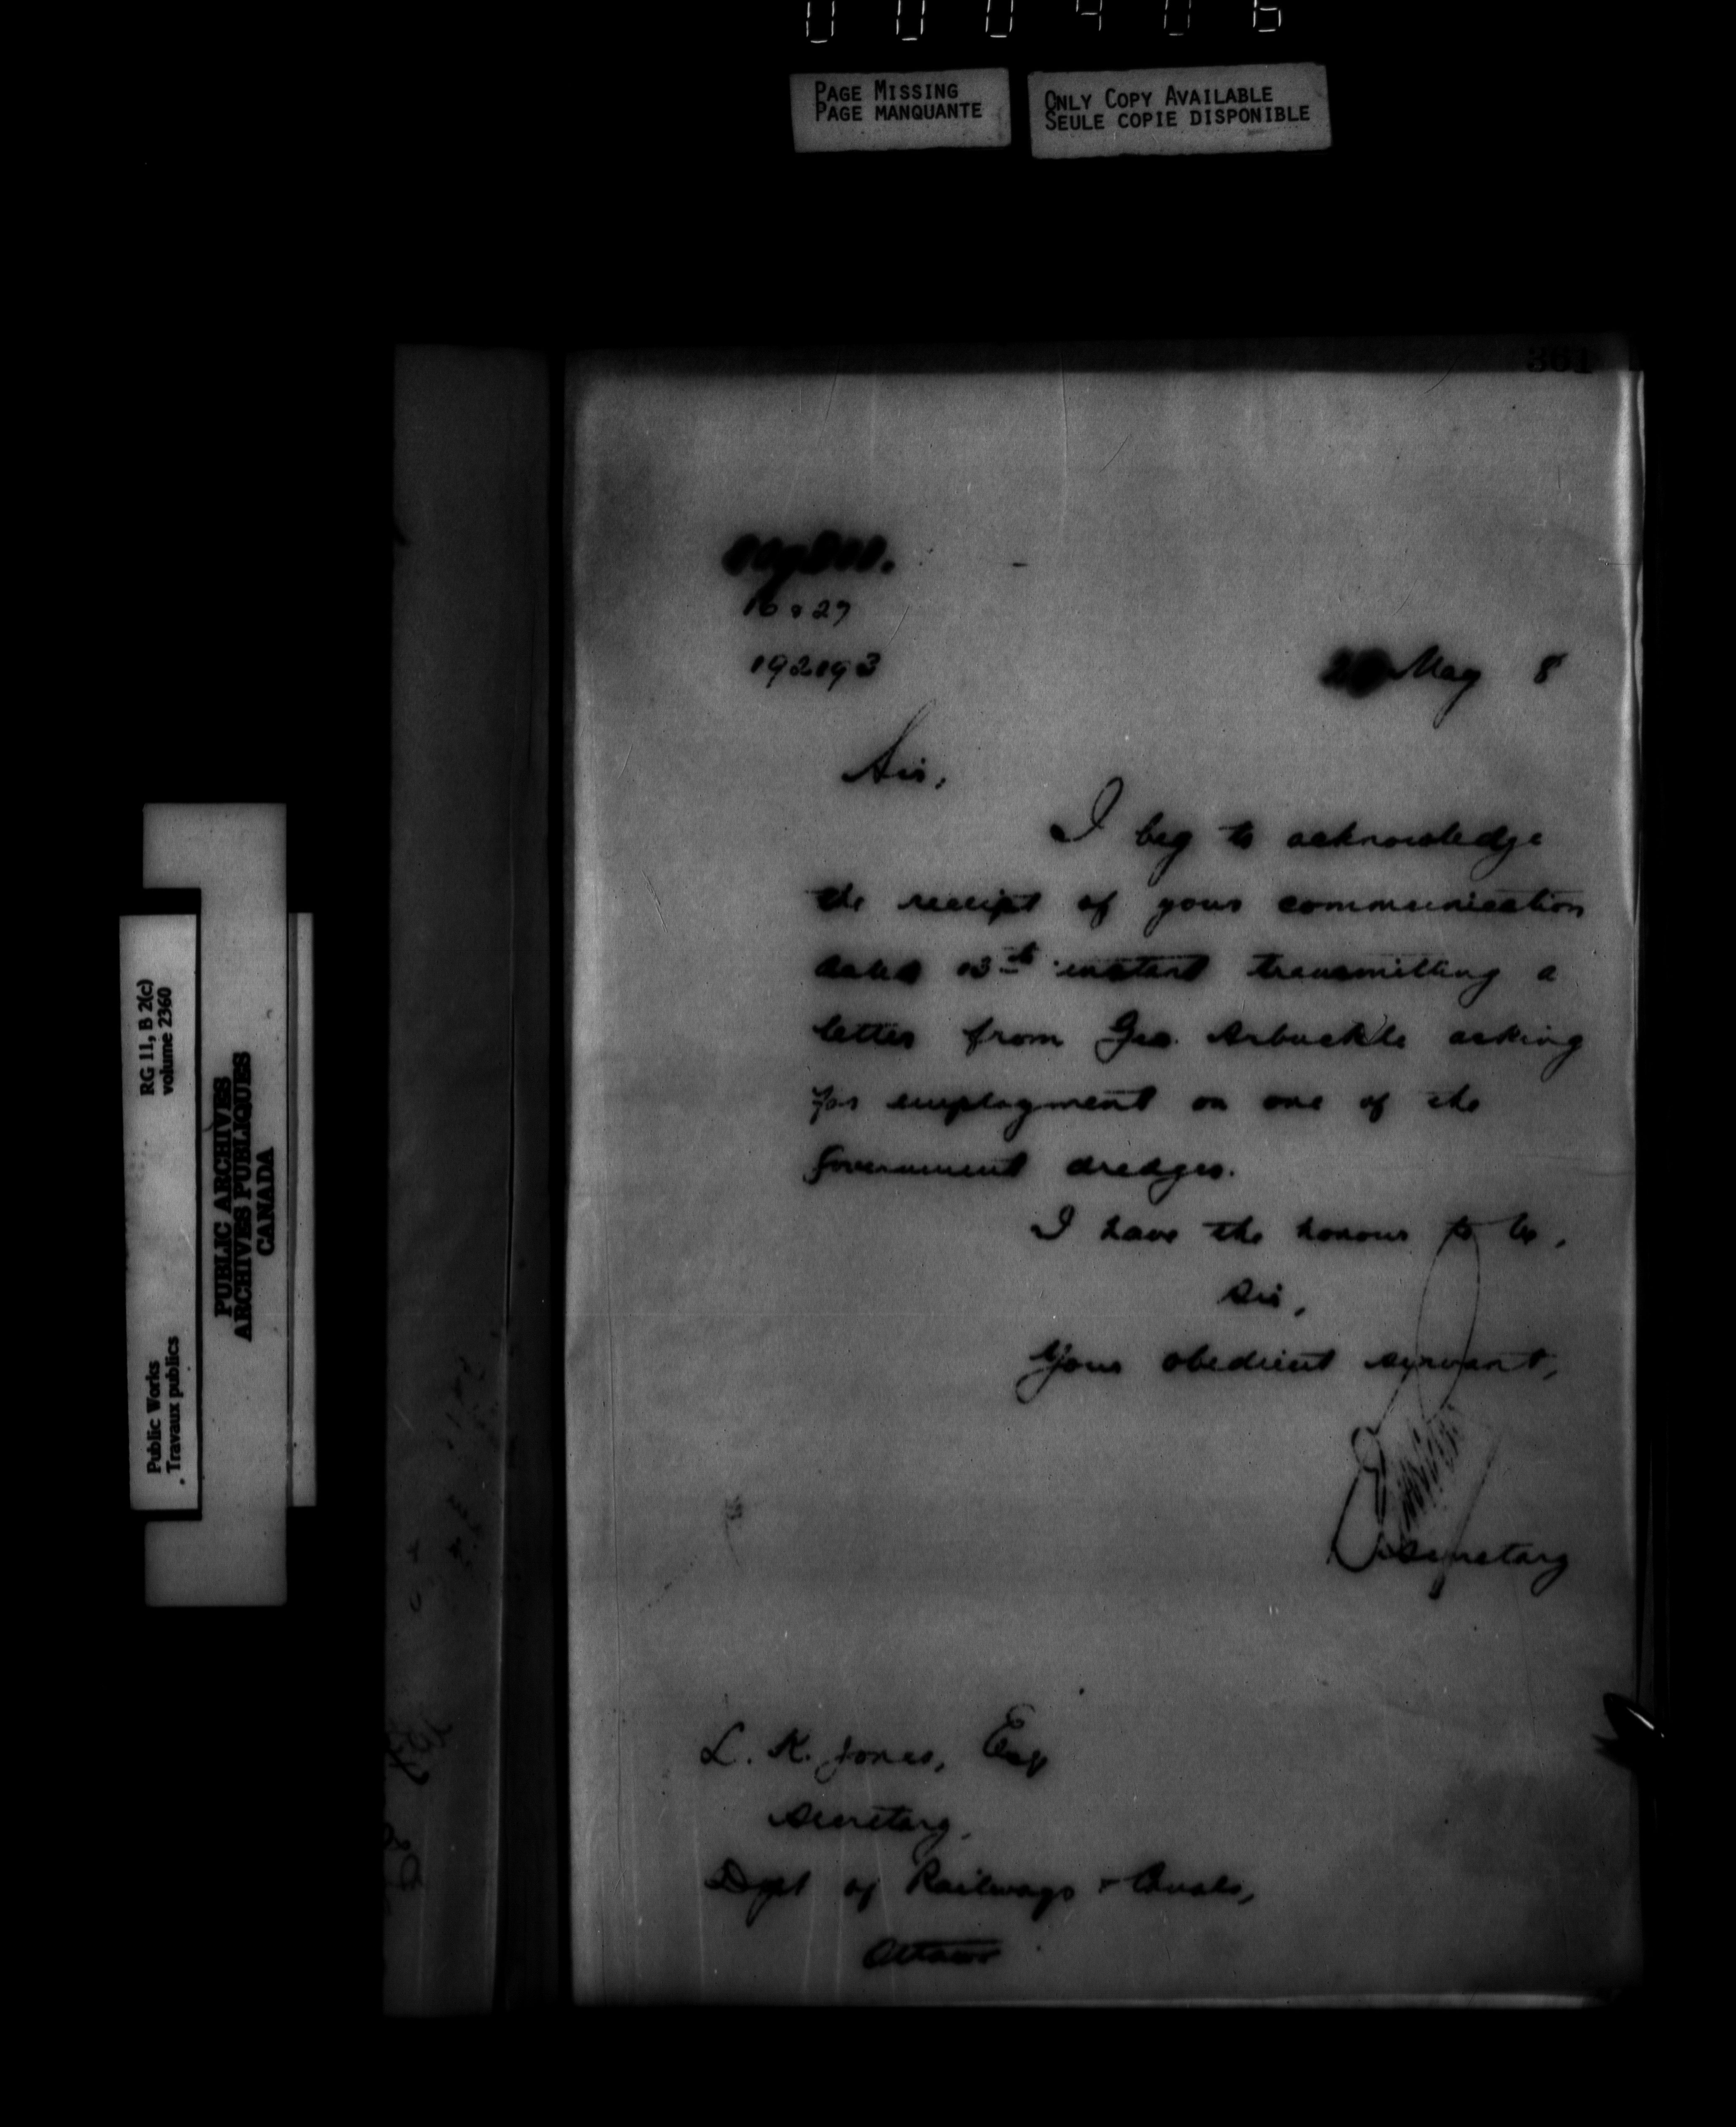 000406
PAGE MISSING
PAGE MANQUANTE
ONLY COPY AVAILABLE
SEULE COPIE DISPONIBLE
361
192193
May 8
Sir,
I beg to acknowledge
the receipt of your communication
dated 13th instant transmitting a
letter from Geo. Arbuckle asking
for employment on one of the
Government dredges.
I have the honour to be,
Sir,
Your obedient servant,
Secretary
L. K. Jones, Esq
Secretary,
Dept of Railways & Canals,
Ottawa
RG 11, B 2(c)
volume 2360
Public Works
Travaux publics
PUBLIC ARCHIVES
ARCHIVES PUBLIQUES
CANADA